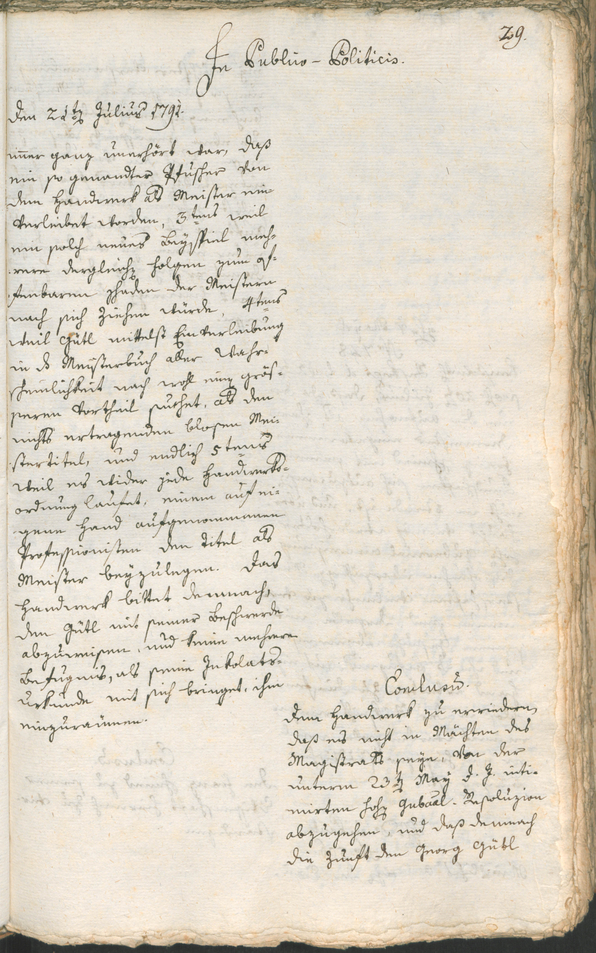 29.
In Publico-Politicis.
Den 21ten Julius 1791.
mer ganz unerhört war, daß
ein so genandter Pfusher von
dem Handwerk als Meister ein-
verleibet worden, 3tens weil
ein solch neues Beyspiel meh-
rere dergleichen folgen zum of-
fenbaren schaden der Meistern
nach sich ziehen würde, 4tens
weil Gütl mittelst Einverleibung
in das Meisterbuch aller Wahr-
scheinlichkeit nach wohl einen grös-
seren Vortheil suchet, als den
nichts ertragenden blosen Mei-
stertitel, und endlich 5tens
weil es wider jede Handwerks-
ordnung laufet, einem auf ei-
gene Hand aufgenommenen
Professionisten den Titel als
Meister beyzulegen. Das
Handwerk bittet demnach,
den Gütl mit seiner Beschwerde
abzuweisen, und keine mehrere
Befugnis, als seine Inkolats-
Urkunde mit sich bringet, ihm
einzuraumen.
Conclusum.
Dem Handwerk zu erwiedern,
daß es nicht in Mächten des
Magistrats seye, von der
unterm 23ten May d. J. inti-
mirten hohen Gubaal. Resoluzion
abzugehen, und daß demnach
die Zunft den Georg Gütl